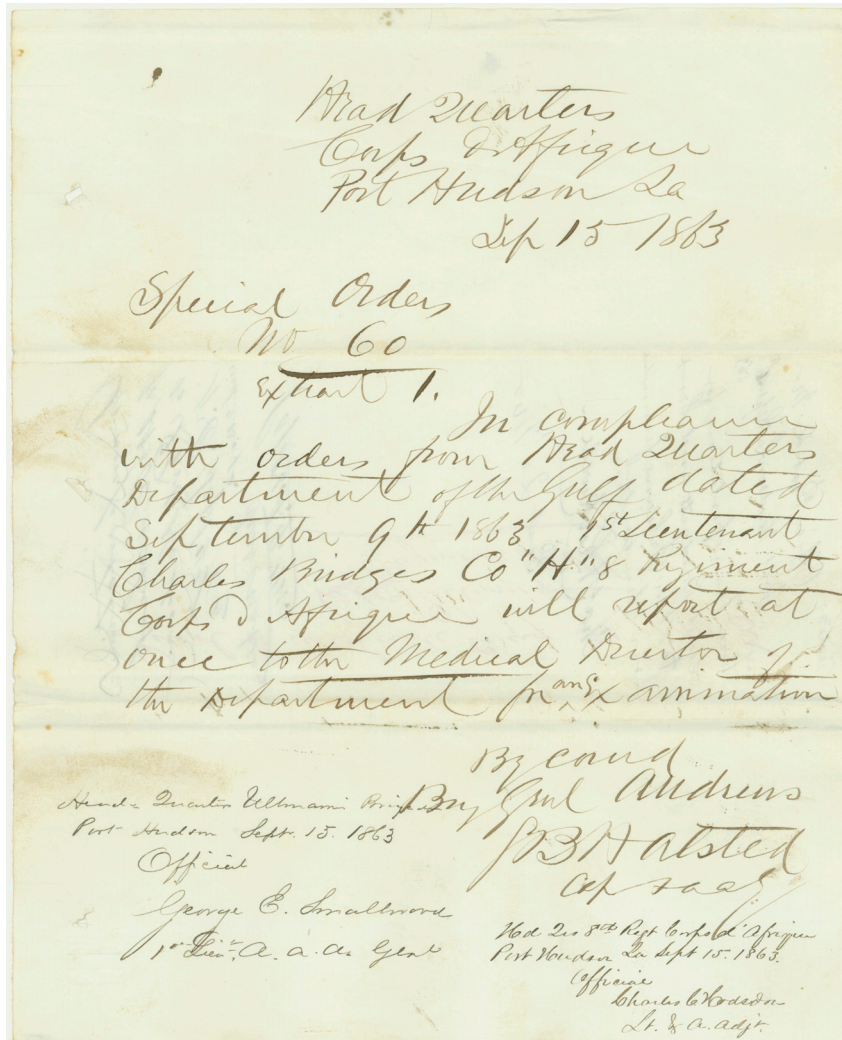 Head Quarters
Corps D'Afrique
Port Hudson La
Sep 15 1863
Special Orders
No 60
Extract 1.
In compliance
with orders from Head Quarters
Department of the Gulf dated
September 9th 1863 1st Lieutenant
Charles Bridges Co "H" 8 Regiment
Corps d Afrique will report at
once to the Medical Director of
the Department for an Examination
By comd
Brig Genl Andrews
G B Halsted
Cap & AAG
Head Quarters Ullmann's Brigade
Port Hudson Sept. 15. 1863
Official
George E. Smallwood
1st Lieut. A. a. a. Genl
Hd Qrs 8th Regt Corps d'Afrique
Port Hudson La Sept 15. 1863.
Official
Charles C Hodsdon
Lt. & a. adjt.